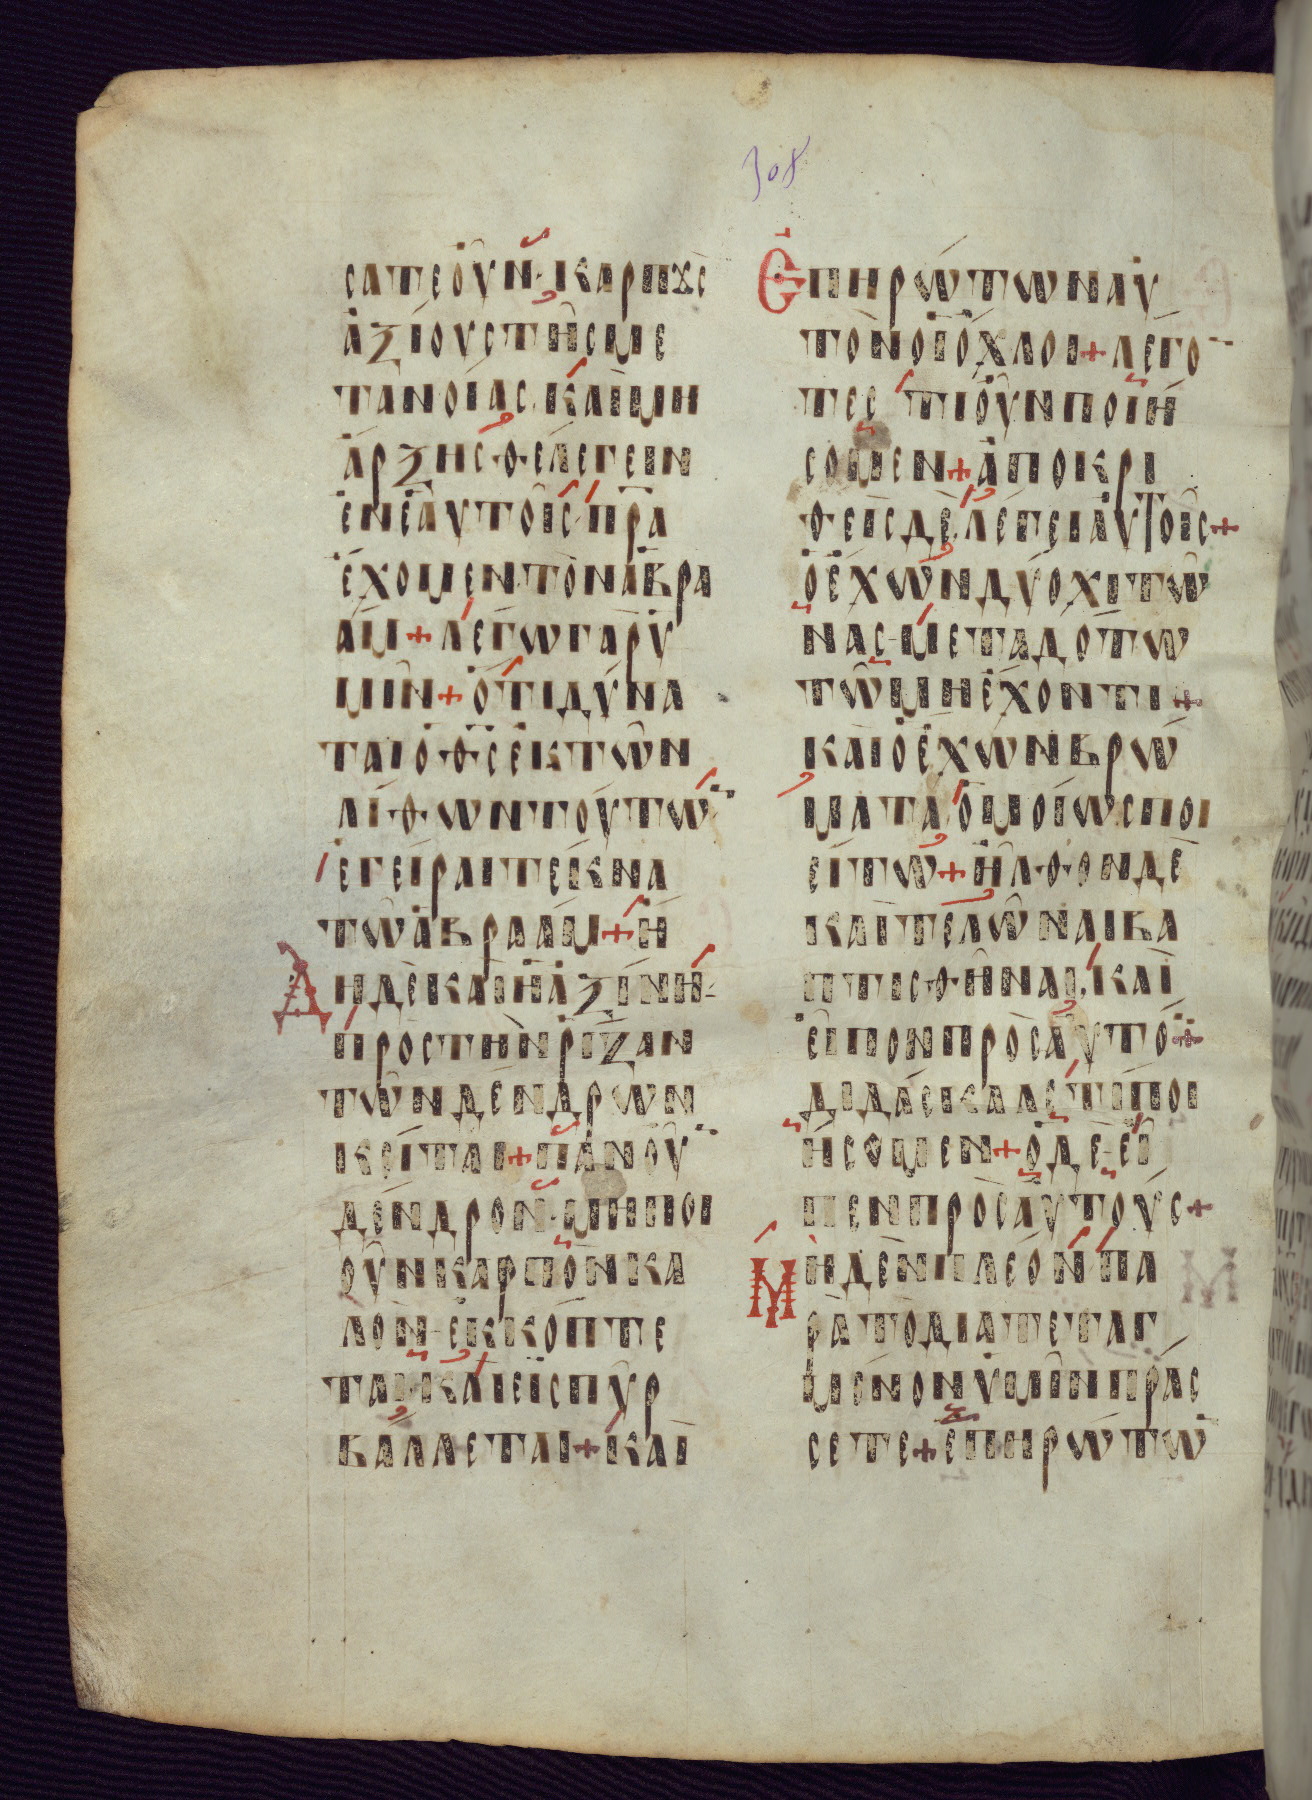 308
σατε οὖν· καρπȣ̀ς
ἀξίους τῆς με
τανοίας. καὶ μὴ
ἄρξησθε λέγειν
ἐν ἑαυτοῖς· πρα
ἔχομεν· τὸν ἀβρα
άμ + λέγω γὰρ ὑ
μῖν + ὅτι δύνα
ται ὁ θς ἐκ τῶν
λίθων τούτω
ἐγεῖραι τέκνα
τῶ ἀβραάμ + ἤ
Δη δὲ καὶ ἡ ἀξίνη·
πρὸς τὴν ῥίζαν
τῶν δένδρων
κεῖται + πᾶν οὖ
δένδρον· μὴ ποι
οῦν καρπὸν κα
λὸν· ἐκκόπτε
ται· καὶ εἰς πῦρ
βάλλεται + καὶ
Ἐπηρώτων αὐ
τὸν οἱ ὄχλοι + λέγο
τες τί οὖν ποιή
σομεν + ἀποκρι
θεὶς δὲ λέγει αὐτοῖς +
ὁ ἔχων δύο χιτῶ
νας· μεταδότω
τῶ μὴ ἔχοντι +
καὶ ὁ ἔχων βρώ
ματα, ὁμοίως ποι
είτω + ἦλθον δὲ
καὶ τελῶναι βα
πτισθῆναι, καὶ
εἶπον πρὸς αὐτό +
διδάσκαλε, τί ποι
ήσομεν + ὁ δὲ· εἶ
πεν πρὸς αὐτούς +
Μηδὲν πλέον πα
ρὰ τὸ διατεταγ
μένον ὑμῖν πράσ
σετε + ἐπηρώτω